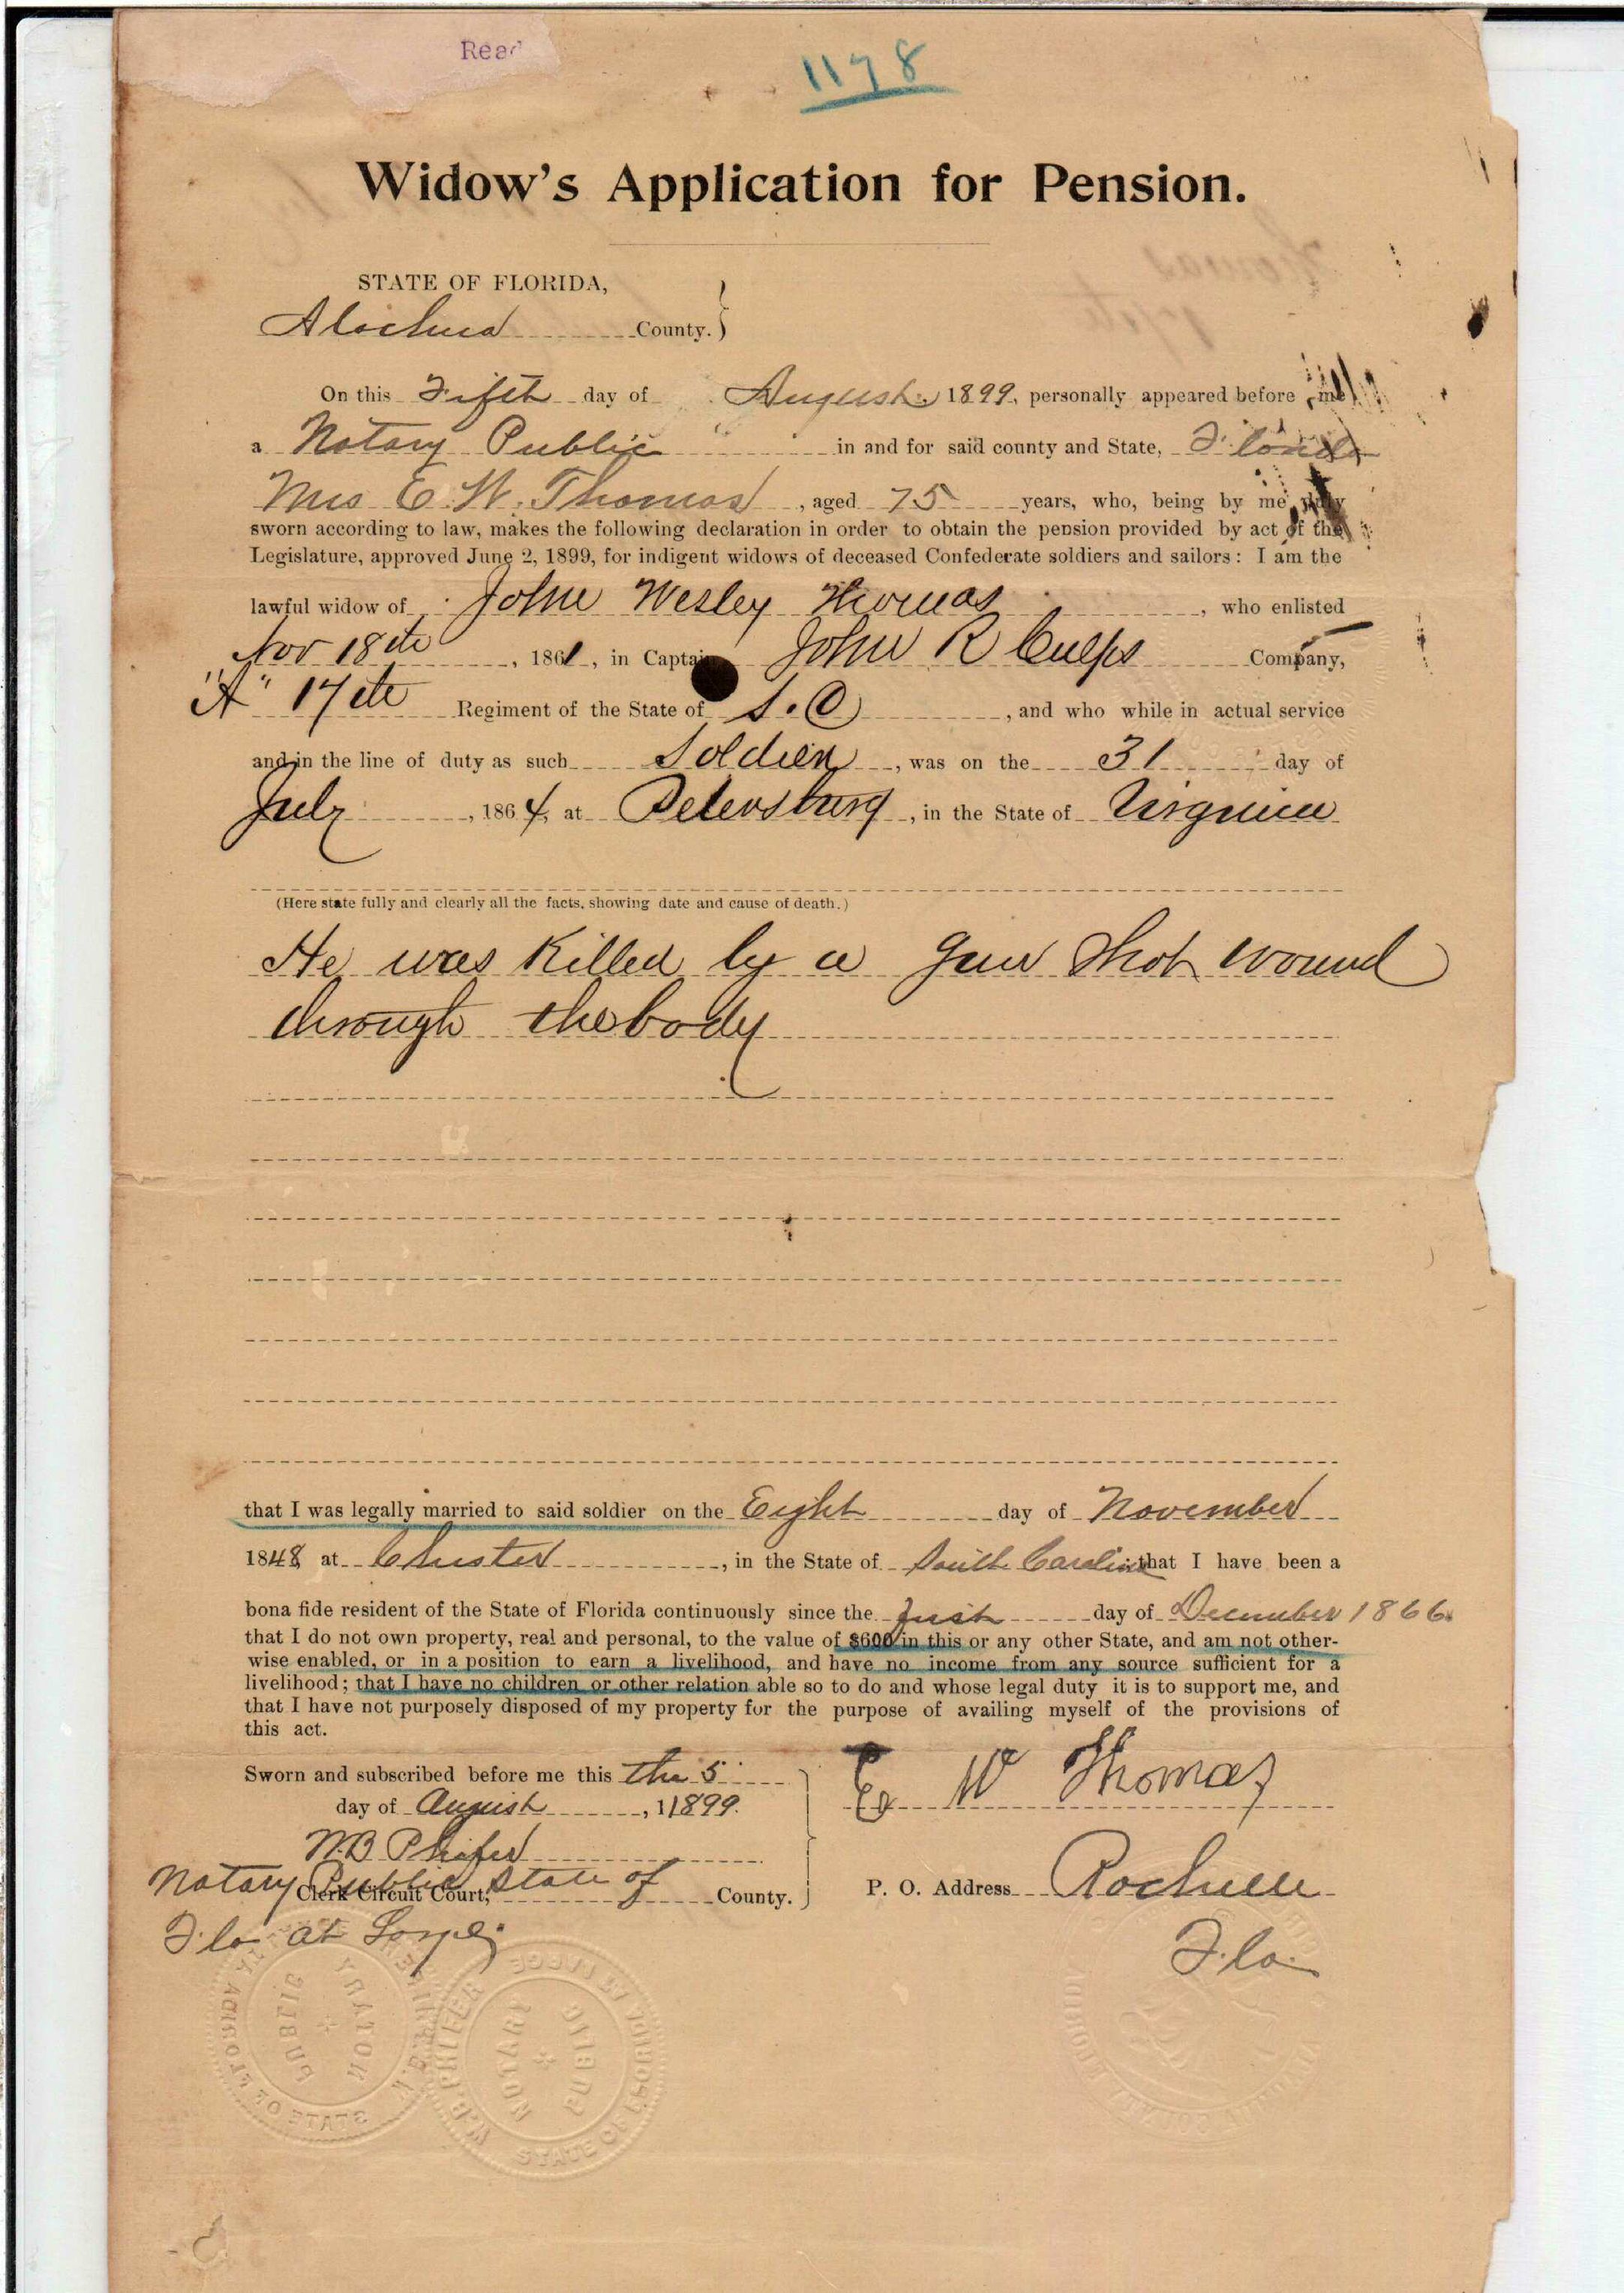 Read
1178
Widow's Application for Pension.
STATE OF FLORIDA,
Alachua County. }
On this Fifth day of August, 1899, personally appeared before me
a Notary Public in and for said county and State, Florida
Mrs E. W. Thomas, aged 75 years, who, being by me duly
sworn according to law, makes the following declaration in order to obtain the pension provided by act of the
Legislature, approved June 2, 1899, for indigent widows of deceased Confederate soldiers and sailors: I am the
lawful widow of John Wesley Thomas, who enlisted
Nov 18th, 1861, in Captain John R Culps Company,
"A" 17th Regiment of the State of S.C, and who while in actual service
and in the line of duty as such Soldier, was on the 31 day of
July, 1864, at Petersburg, in the State of Virginia
(Here state fully and clearly all the facts, showing date and cause of death.)
He was Killed by a gun shot wound
through the body
that I was legally married to said soldier on the Eight day of November
1848 at Chester, in the State of South Carolina; that I have been a
bona fide resident of the State of Florida continuously since the first day of December 1866
that I do not own property, real and personal, to the value of $600 in this or any other State, and am not other-
wise enabled, or in a position to earn a livelihood, and have no income from any source sufficient for a
livelihood; that I have no children or other relation able so to do and whose legal duty it is to support me, and
that I have not purposely disposed of my property for the purpose of availing myself of the provisions of
this act.
Sworn and subscribed before me this the 5
day of August, 11899.
E W Thomas
W.B Phifer
Notary Public State of
Clerk Circuit Court, County.
Fla at Large
P. O. Address Rochelle
Fla.
NOTARY PUBLIC
STATE OF FLORIDA
W.B. PHIFER
NOTARY PUBLIC
STATE OF FLORIDA AT LARGE